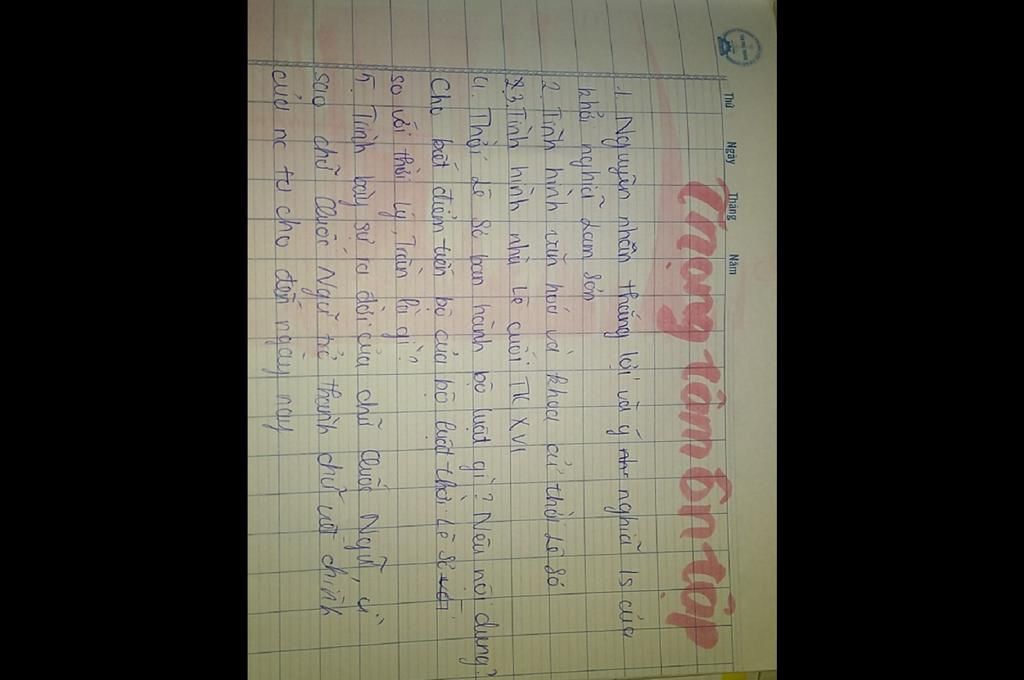 Thứ Ngày Tháng Năm
Trọng tâm ôn tập
1. Nguyên nhân thắng lợi và ý nghĩa ls của
khởi nghĩa Lam Sơn
2. Tình hình văn hoá và khoa cử thời Lê Sơ
3. Tình hình nhà Lê cuối TK XVI
4. Thời Lê Sơ ban hành bộ luật gì? Nêu nội dung?
Cho biết điểm tiến bộ của bộ luật thời Lê Sơ
so với thời Lý, Trần là gì?
5. Trình bày sự ra đời của chữ Quốc Ngữ, vì
sao chữ Quốc Ngữ trở thành chữ viết chính
của nc ta cho đến ngày nay